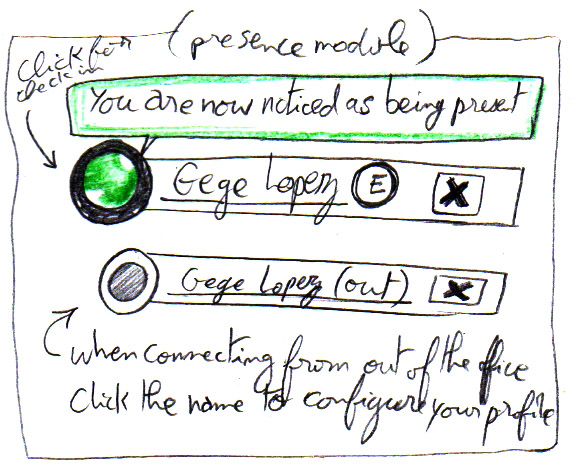 (presence module)
Click for
check in
You are now noticed as being preset
Gege Lopez E X
Gege Lopez (out) X
when connecting from out of the office
Click the name to configure your profile